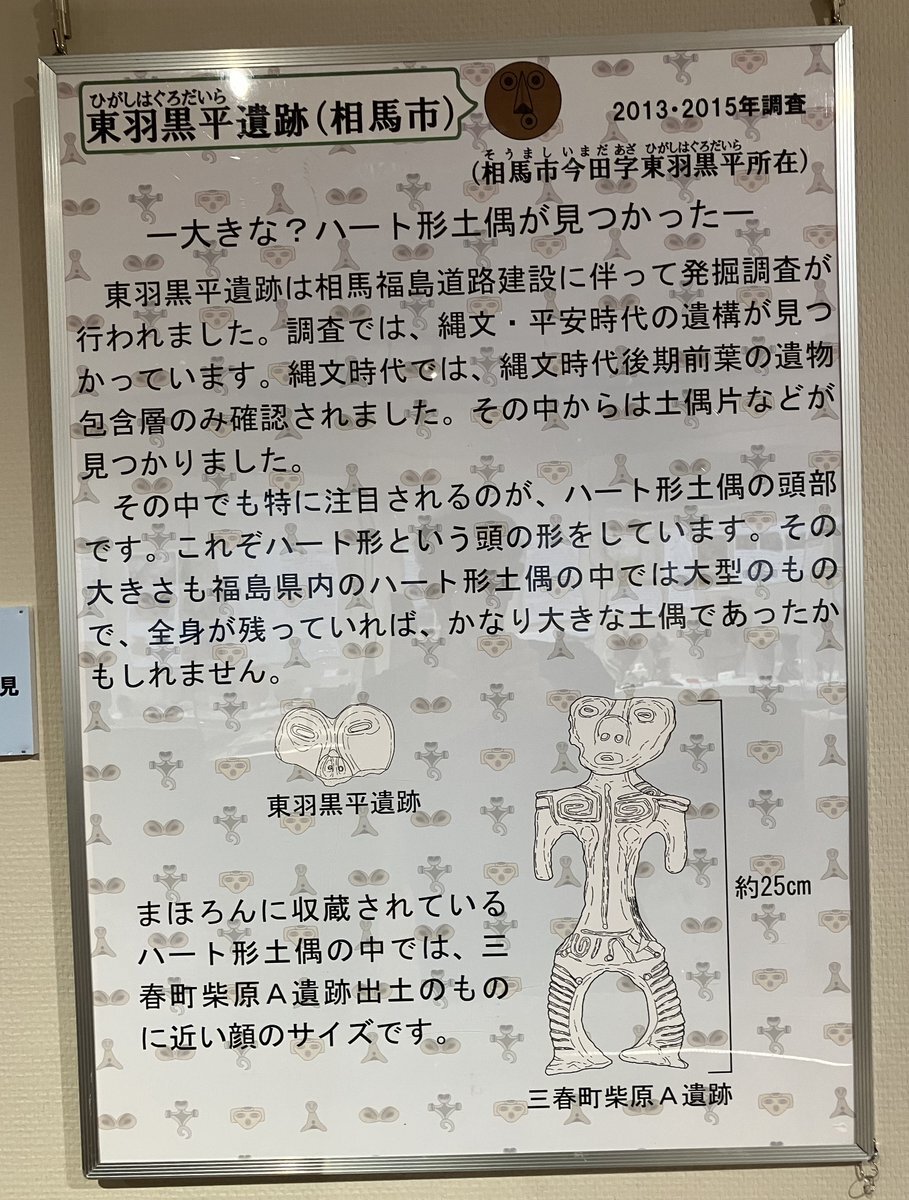 ひがしはぐろだいら
東羽黒平遺跡(相馬市)
2013・2015年調査
そうましいまだあざ ひがしはぐろだいら
(相馬市今田字東羽黒平所在)
―大きな?ハート形土偶が見つかった―
東羽黒平遺跡は相馬福島道路建設に伴って発掘調査が
行われました。調査では、縄文・平安時代の遺構が見つ
かっています。縄文時代では、縄文時代後期前葉の遺物
包含層のみ確認されました。その中からは土偶片などが
見つかりました。
その中でも特に注目されるのが、ハート形土偶の頭部
です。これぞハート形という頭の形をしています。その
大きさも福島県内のハート形土偶の中では大型のもの
で、全身が残っていれば、かなり大きな土偶であったか
もしれません。
東羽黒平遺跡
まほろんに収蔵されている
ハート形土偶の中では、三
春町柴原A遺跡出土のもの
に近い顔のサイズです。
約25cm
三春町柴原A遺跡
見